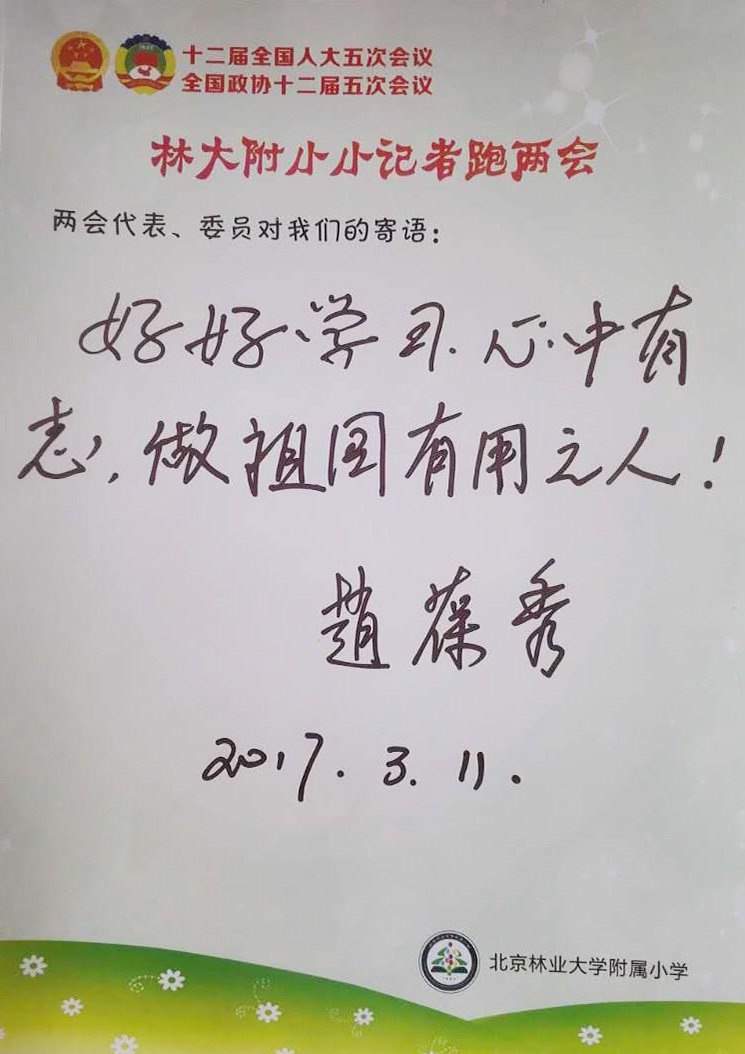 十二届全国人大五次会议
全国政协十二届五次会议
林大附小小记者跑两会
两会代表、委员对我们的寄语：
好好学习.心中有
志,做祖国有用之人！
趙葆秀
2017.3.11.
北京林业大学附属小学